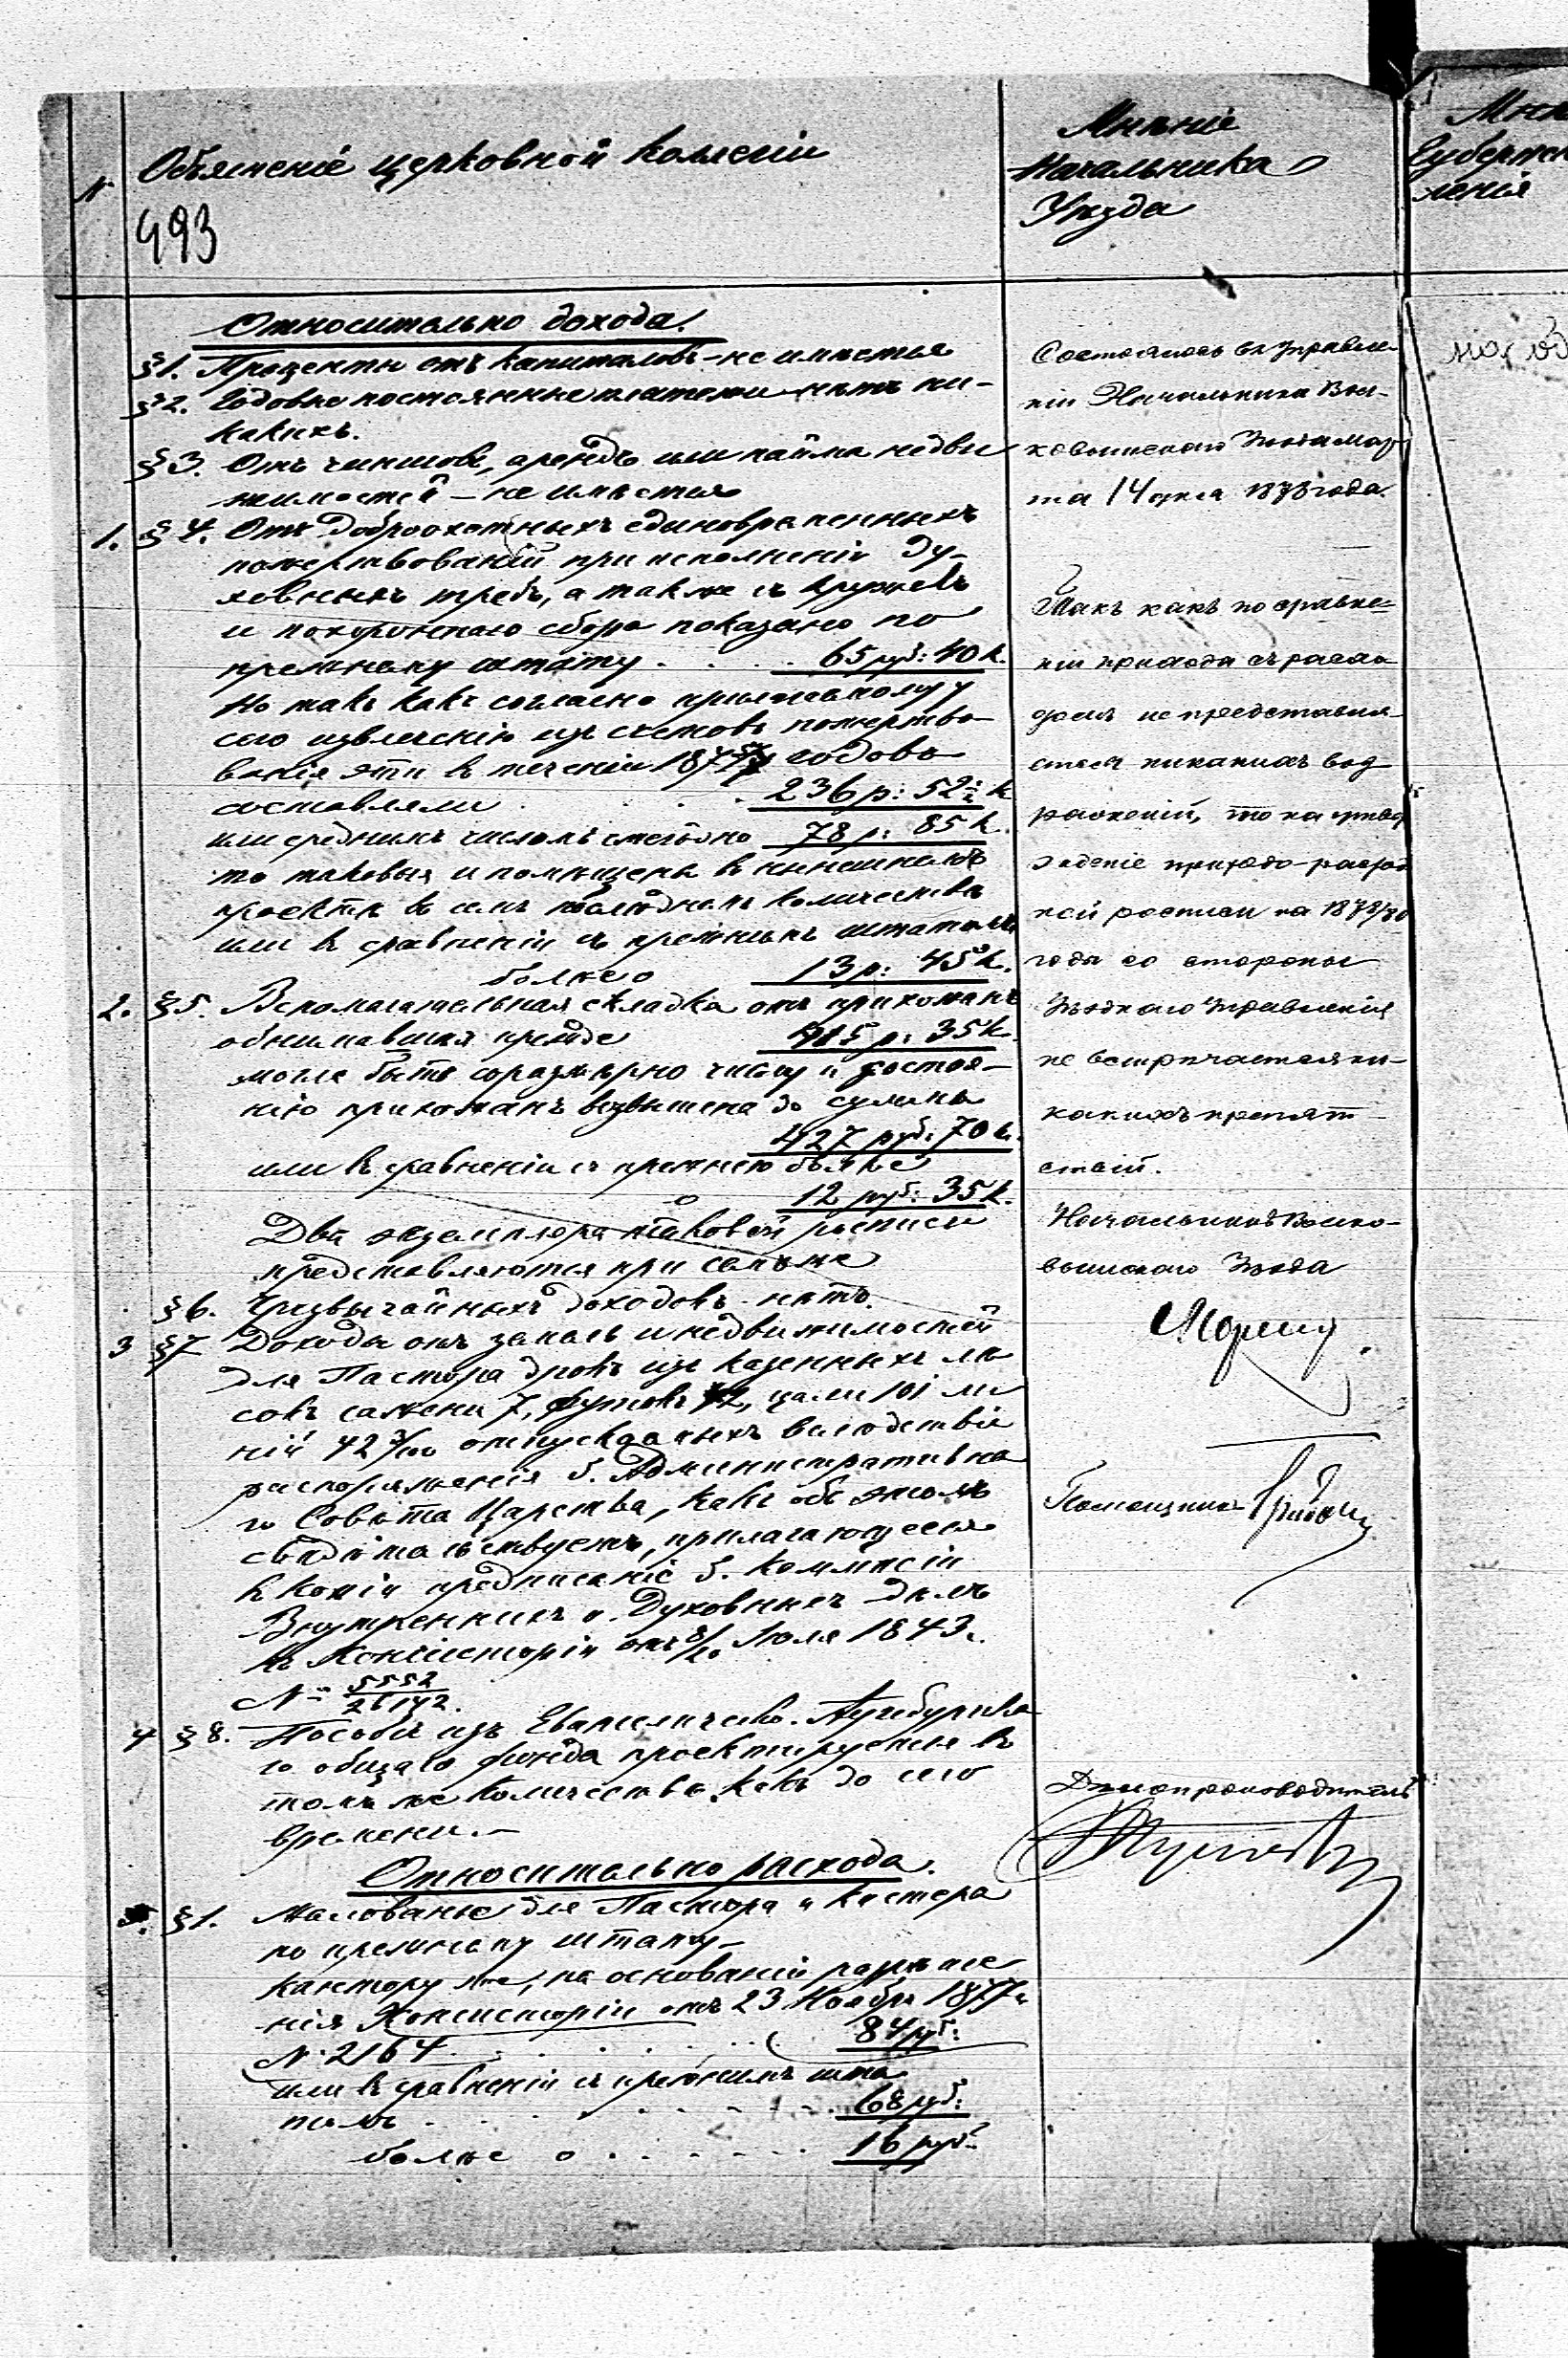 №
Объясненіе церковной Коллегіи
493
Мнѣніе
Начальника
Уѣзда
Относительно дохода.
§1. Проценты отъ капиталовъ – не имѣется
§2. Годовые постоянные платежи нѣтъ ни-
какихъ.
§3. Отъ чиншовъ, арендъ или найма недви
жимостей – не имѣется
1. §4. Отъ доброохотныхъ единовременныхъ
пожертвованій при исполненіи Ду-
ховныхъ требъ, а также съ кружекъ
и похороннаго сбора показано по
прежнему штату . . . . 65 руб: 40 к.
Но такъ какъ согласно прилагаемому у
сего извлеченію изъ счетовъ пожертво-
ванія эти въ теченіи годовъ
составляли . . . . 236 р: 52½ к
или среднимъ числомъ ежегодно 78 р: 85 к.
то таковыя и помѣщены въ нынѣшнемъ
проектѣ въ семъ количествѣ
или въ сравненіи съ прежнимъ штатомъ
болѣе о 13 р: 45 к.
2. §5. Вспомогательная складка отъ прихожанъ
обнимавшая прежде 415 р: 35 к.
могла быть соразмѣрно числу и достоя-
нію прихожанъ возвышена до суммы
427 руб: 70 к.
или въ сравненіи съ прежнею болѣе
о 12 руб: 35 к.
Два экземпляра таковой росписи
представляются при семъ же
§6. Чрезвычайныхъ доходовъ – нѣтъ.
3 §7 Доходы отъ земель и недвижимостей
для Пастора дровъ изъ казенныхъ лѣ
совъ сажени 7, футовъ 42, цали 101 ли
ній 42 3/100 отпускаемыхъ вслѣдствіе
распоряженія б. Административна
го Совѣта Царства, какъ объ этомъ
свидѣтельствуетъ, прилагающееся
въ копіи предписаніе б. Коммисіи
Внутреннихъ и Духовныхъ Дѣлъ
къ Консисторіи отъ 8/20 Іюля 1843 г.
№ 5552/26192.
4 §8. Пособіе изъ Евангелическо-Аугсбургска
го общаго фонда проектируется въ
томъ же количествѣ какъ до сего
времени. –
Относительно расхода.
5. §1. Жалованье для Пастора и Кистера
по прежнему штату –
кантору же, на основаніи разрѣше
нія Консисторіи отъ 23 Ноября 1877 г
№ 2164 . . . . . 84 руб:
или въ сравненіи съ прежнимъ шта
томъ . . . . . . 68 руб:
болѣе о . . . . . . 16 руб.
Состоялось въ Управле-
ніи Начальника Вол-
ковышскаго Уѣзда Мар
та 14 дня 1878 года.
Такъ какъ по сравне-
ніи прихода съ расхо
домъ не представля-
ется никакихъ воз
раженій, то на утвер
жденіе приходо-расход
ной росписи на 1878/80
годы со стороны
Уѣзднаго Управленія
не встрѣчается ни-
какихъ препят-
ствій.
Начальникъ Волко-
вышскаго Уѣзда
Помощникъ
Дѣлопроизводитель
Губернск
ленія